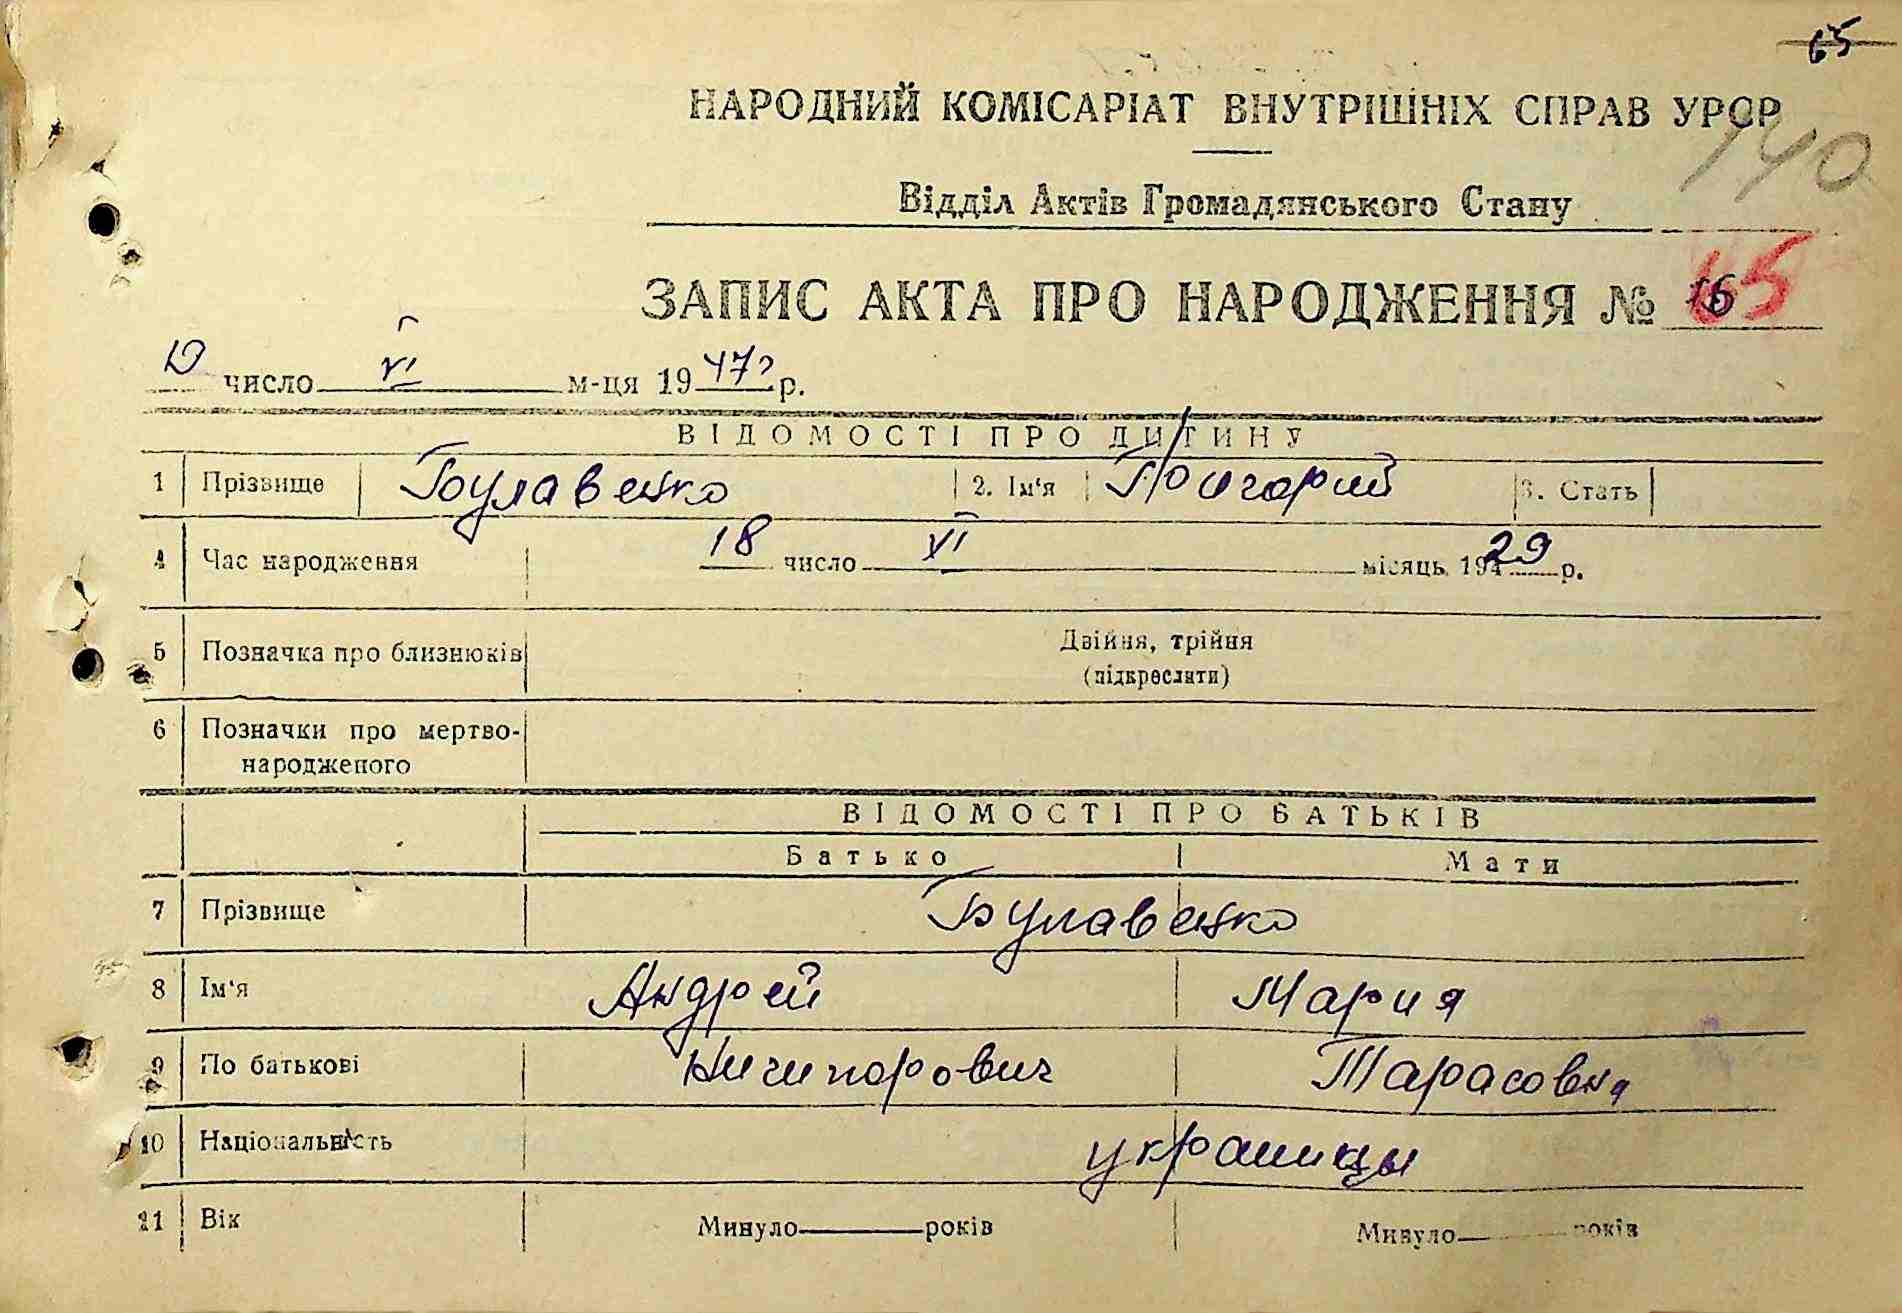 65
НАРОДНИЙ КОМІСАРІАТ ВНУТРІШНІХ СПРАВ УРСР
140
Відділ Актів Громадянського Стану
ЗАПИС АКТА ПРО НАРОДЖЕННЯ № 65
число VI м-ця 1947 р.
ВІДОМОСТІ ПРО ДИТИНУ
1 Прізвище Булавенко 2. Ім'я Григорий 3. Стать
4 Час народження 18 число VI місяць 194 29 р.
5 Позначка про близнюків Двійня, трійня
(підкреслити)
6 Позначки про мертво-
народженого
ВІДОМОСТІ ПРО БАТЬКІВ
Батько Мати
7 Прізвище Булавенко
8 Ім'я Андрей Мария
9 По батькові Ничипорович Тарасовна
10 Національність украинцы
11 Вік Минуло років Минуло років